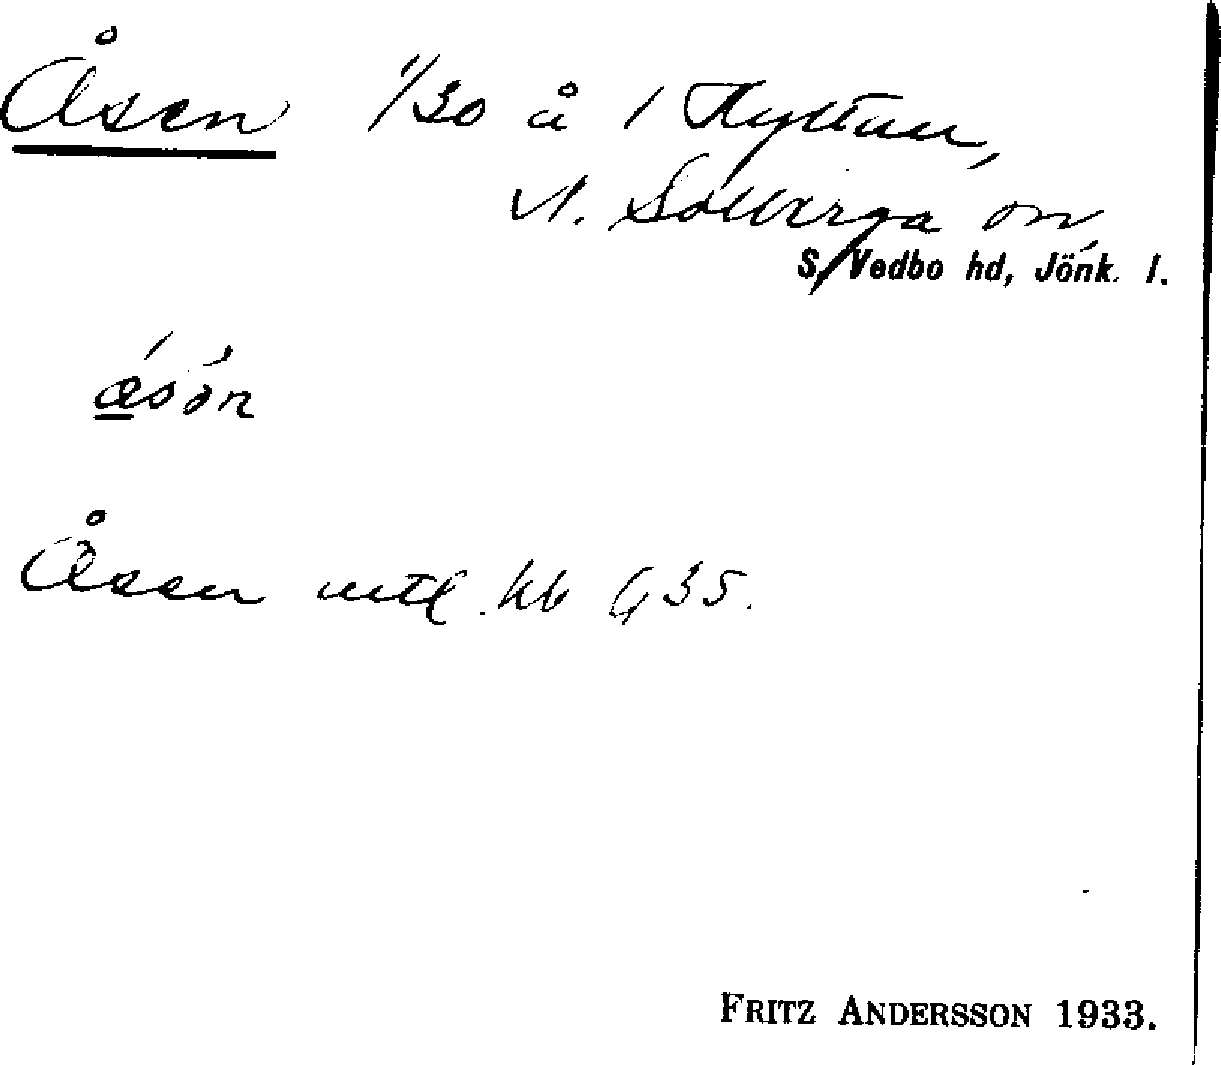 Åsen 1/30 å 1 Flyttan,
N. Solberga sn,
S. Vedbo hd, Jönk. l.
Åsen mtl. kb G 35.
FRITZ ANDERSSON 1933.